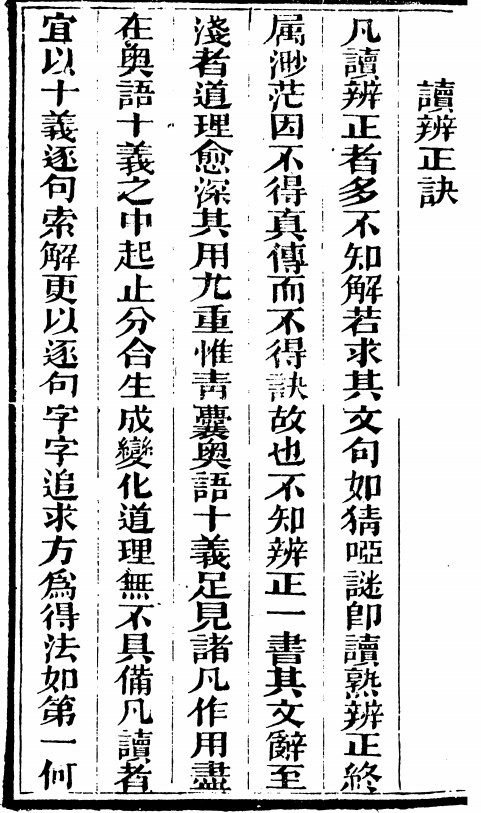 讀辨正訣
凡讀辨正者多不知解若求其文句如猜啞謎卽讀熟辨正終
属渺茫因不得真傳而不得訣故也不知辨正一書其文辭至
淺者道理愈深其用尤重惟青囊奥語十義足見諸凡作用盡
在奥語十義之中起止分合生成變化道理無不具備凡讀者
宜以十義逐句索解更以逐句字字追求方爲得法如第一何